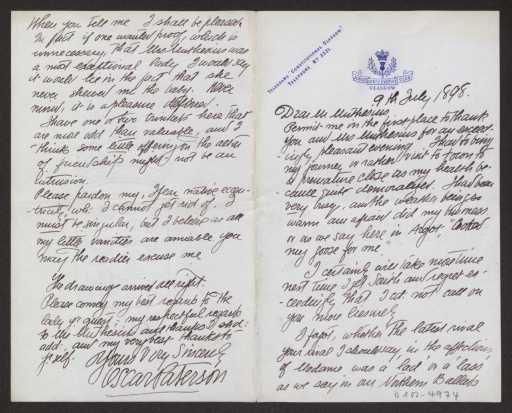 TELEGRAMS "CONSTITUTIONAL GLASGOW"
TELEPHONE No 3231.
GLASGOW
9th July 1898.
Dear Mr Muthesius,
Permit me in the first place to thank
you and Mrs Muthesius for an exceed-
ingly pleasant evening. I had to bring
my journey or rather visit to town to
a premature close as my health be-
came quite demoralised. I had been
very busy, and the weather being so
warm I am afraid did my business
or as we say here in Scot. "Cooked
my goose for me"
I certainly will take more time
next time I go South and regret ex-
ceedingly that I did not call on
you more leisurely
I forgot, whether the latest rival
your rival I should say, in the affections
of Madame, was a "lad" or a "lass"
as we say in our Northern Ballads
D 102-4974
When you tell me I shall be pleased
In fact if one wanted proof, which is
unnecessary, that Mrs Muthesius was
a most exceptional lady I would say
it would lie in the fact that she
never showed me the baby. Never
mind, it is a pleasure deferred.
I have one or two trinkets here that
are more odd than valuable, and I
think some little offering on the altar
of friendship might not be an
intrusion.
Please pardon my
I cannot get rid of. I
must be singular, but I believe as all
my little vanities are amiable you
may the readier excuse me
The drawings arrived all right.
Please convey my best regards to the
lady your guest; my respectful regards
to Mrs Muthesius and I shd
add, and my very best thanks to
yourself.
Yours Very Sincerely
Oscar Paterson